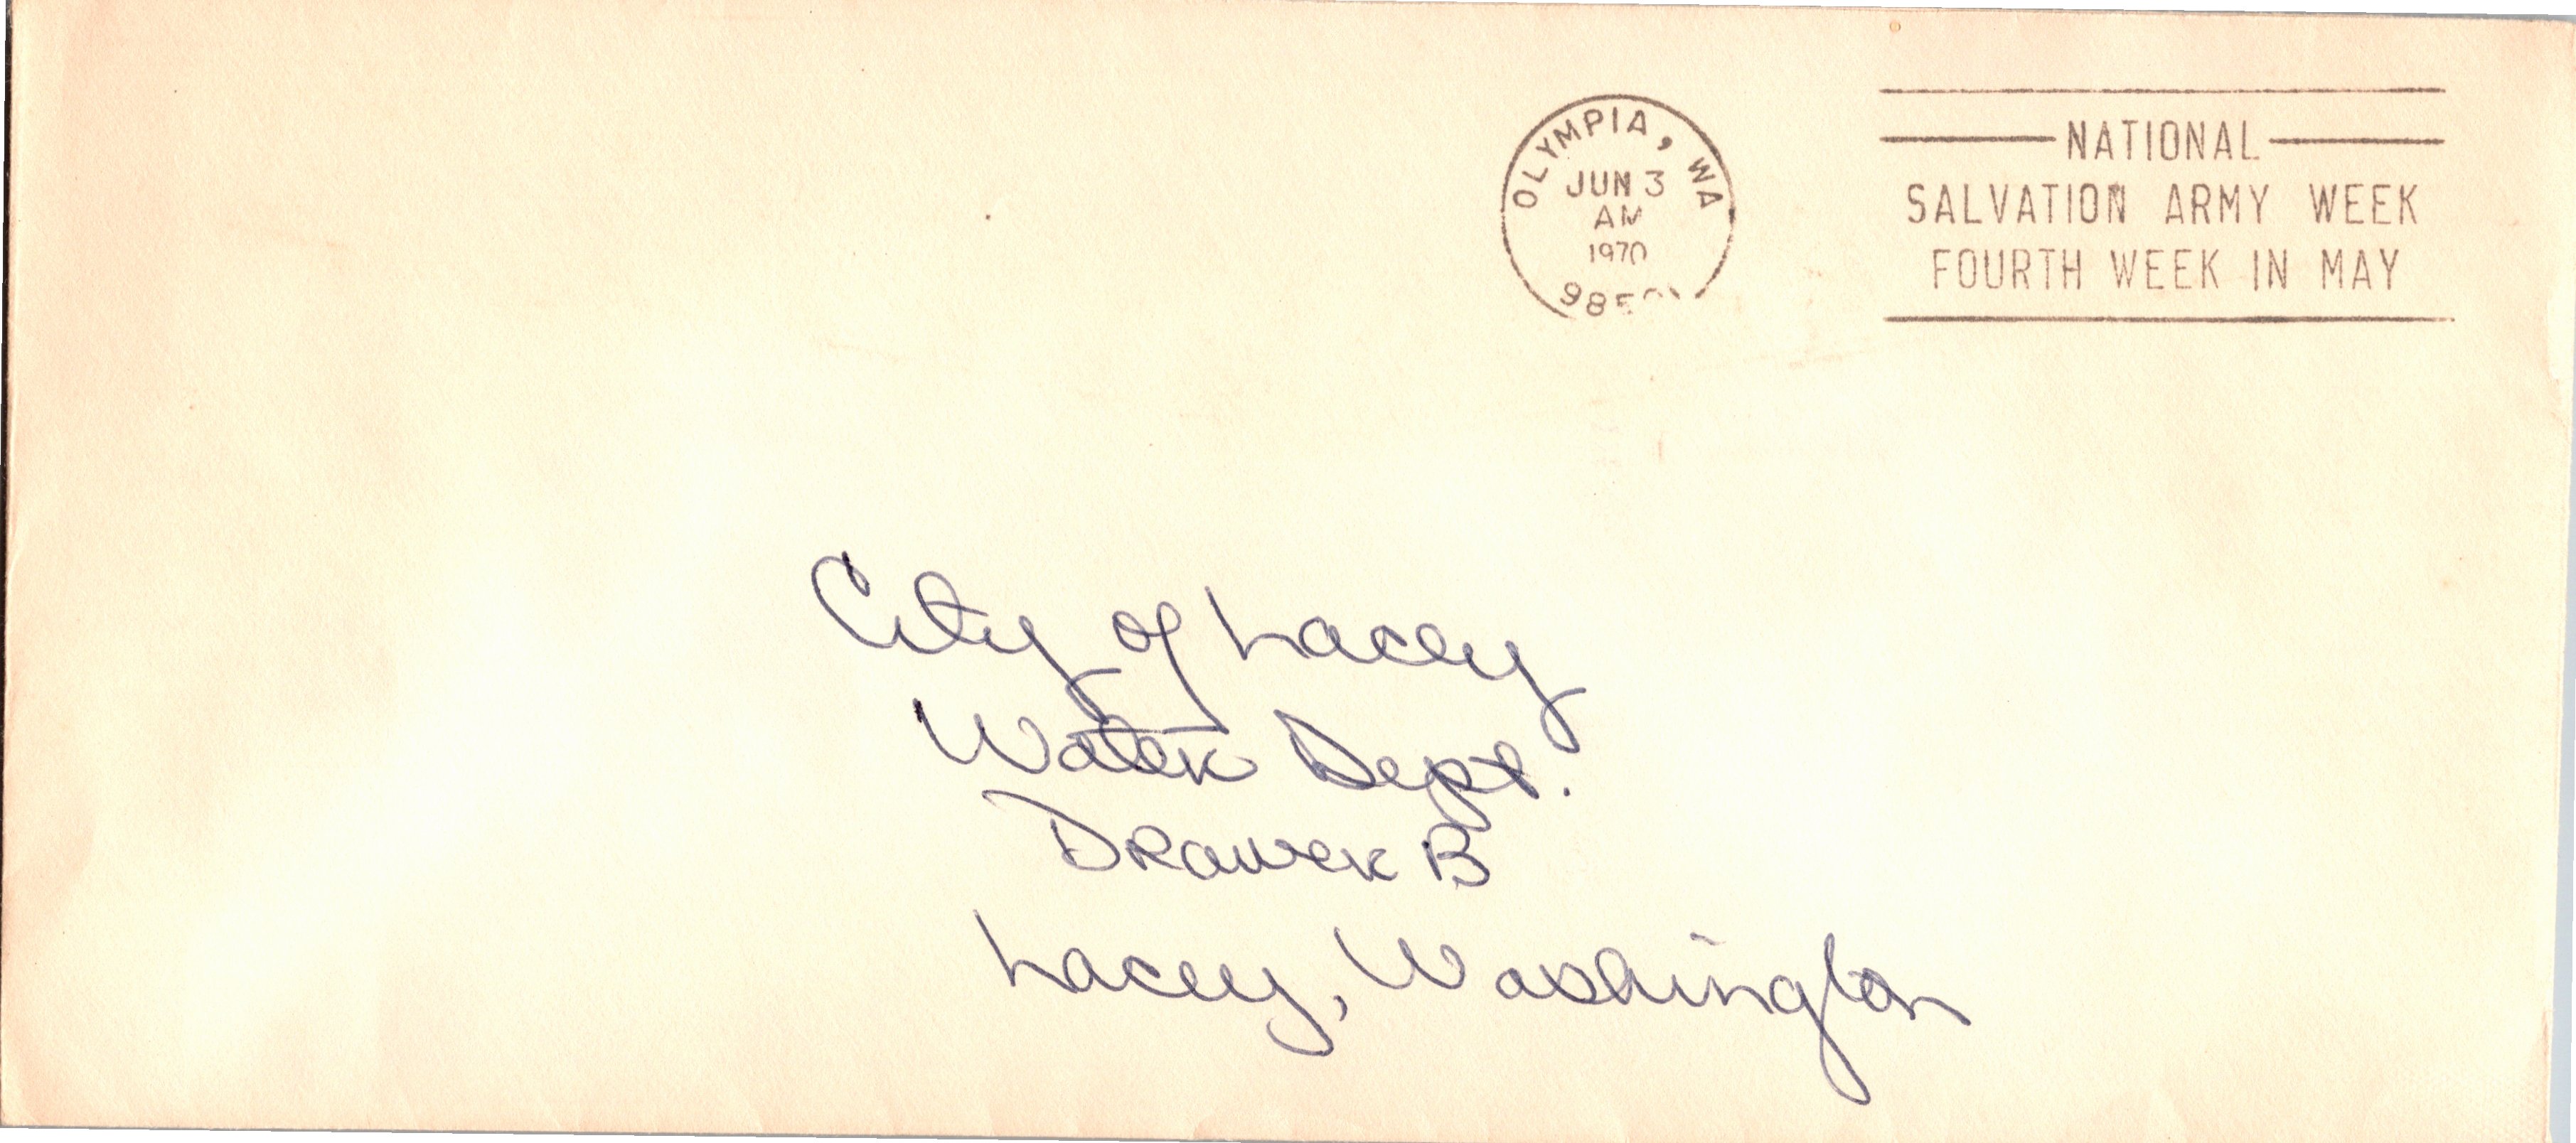 OLYMPIA, WA
JUN 3
AM
1970
NATIONAL
SALVATION ARMY WEEK
FOURTH WEEK IN MAY
City of Lacey
Water Dept.
Drawer B
Lacey, Washington